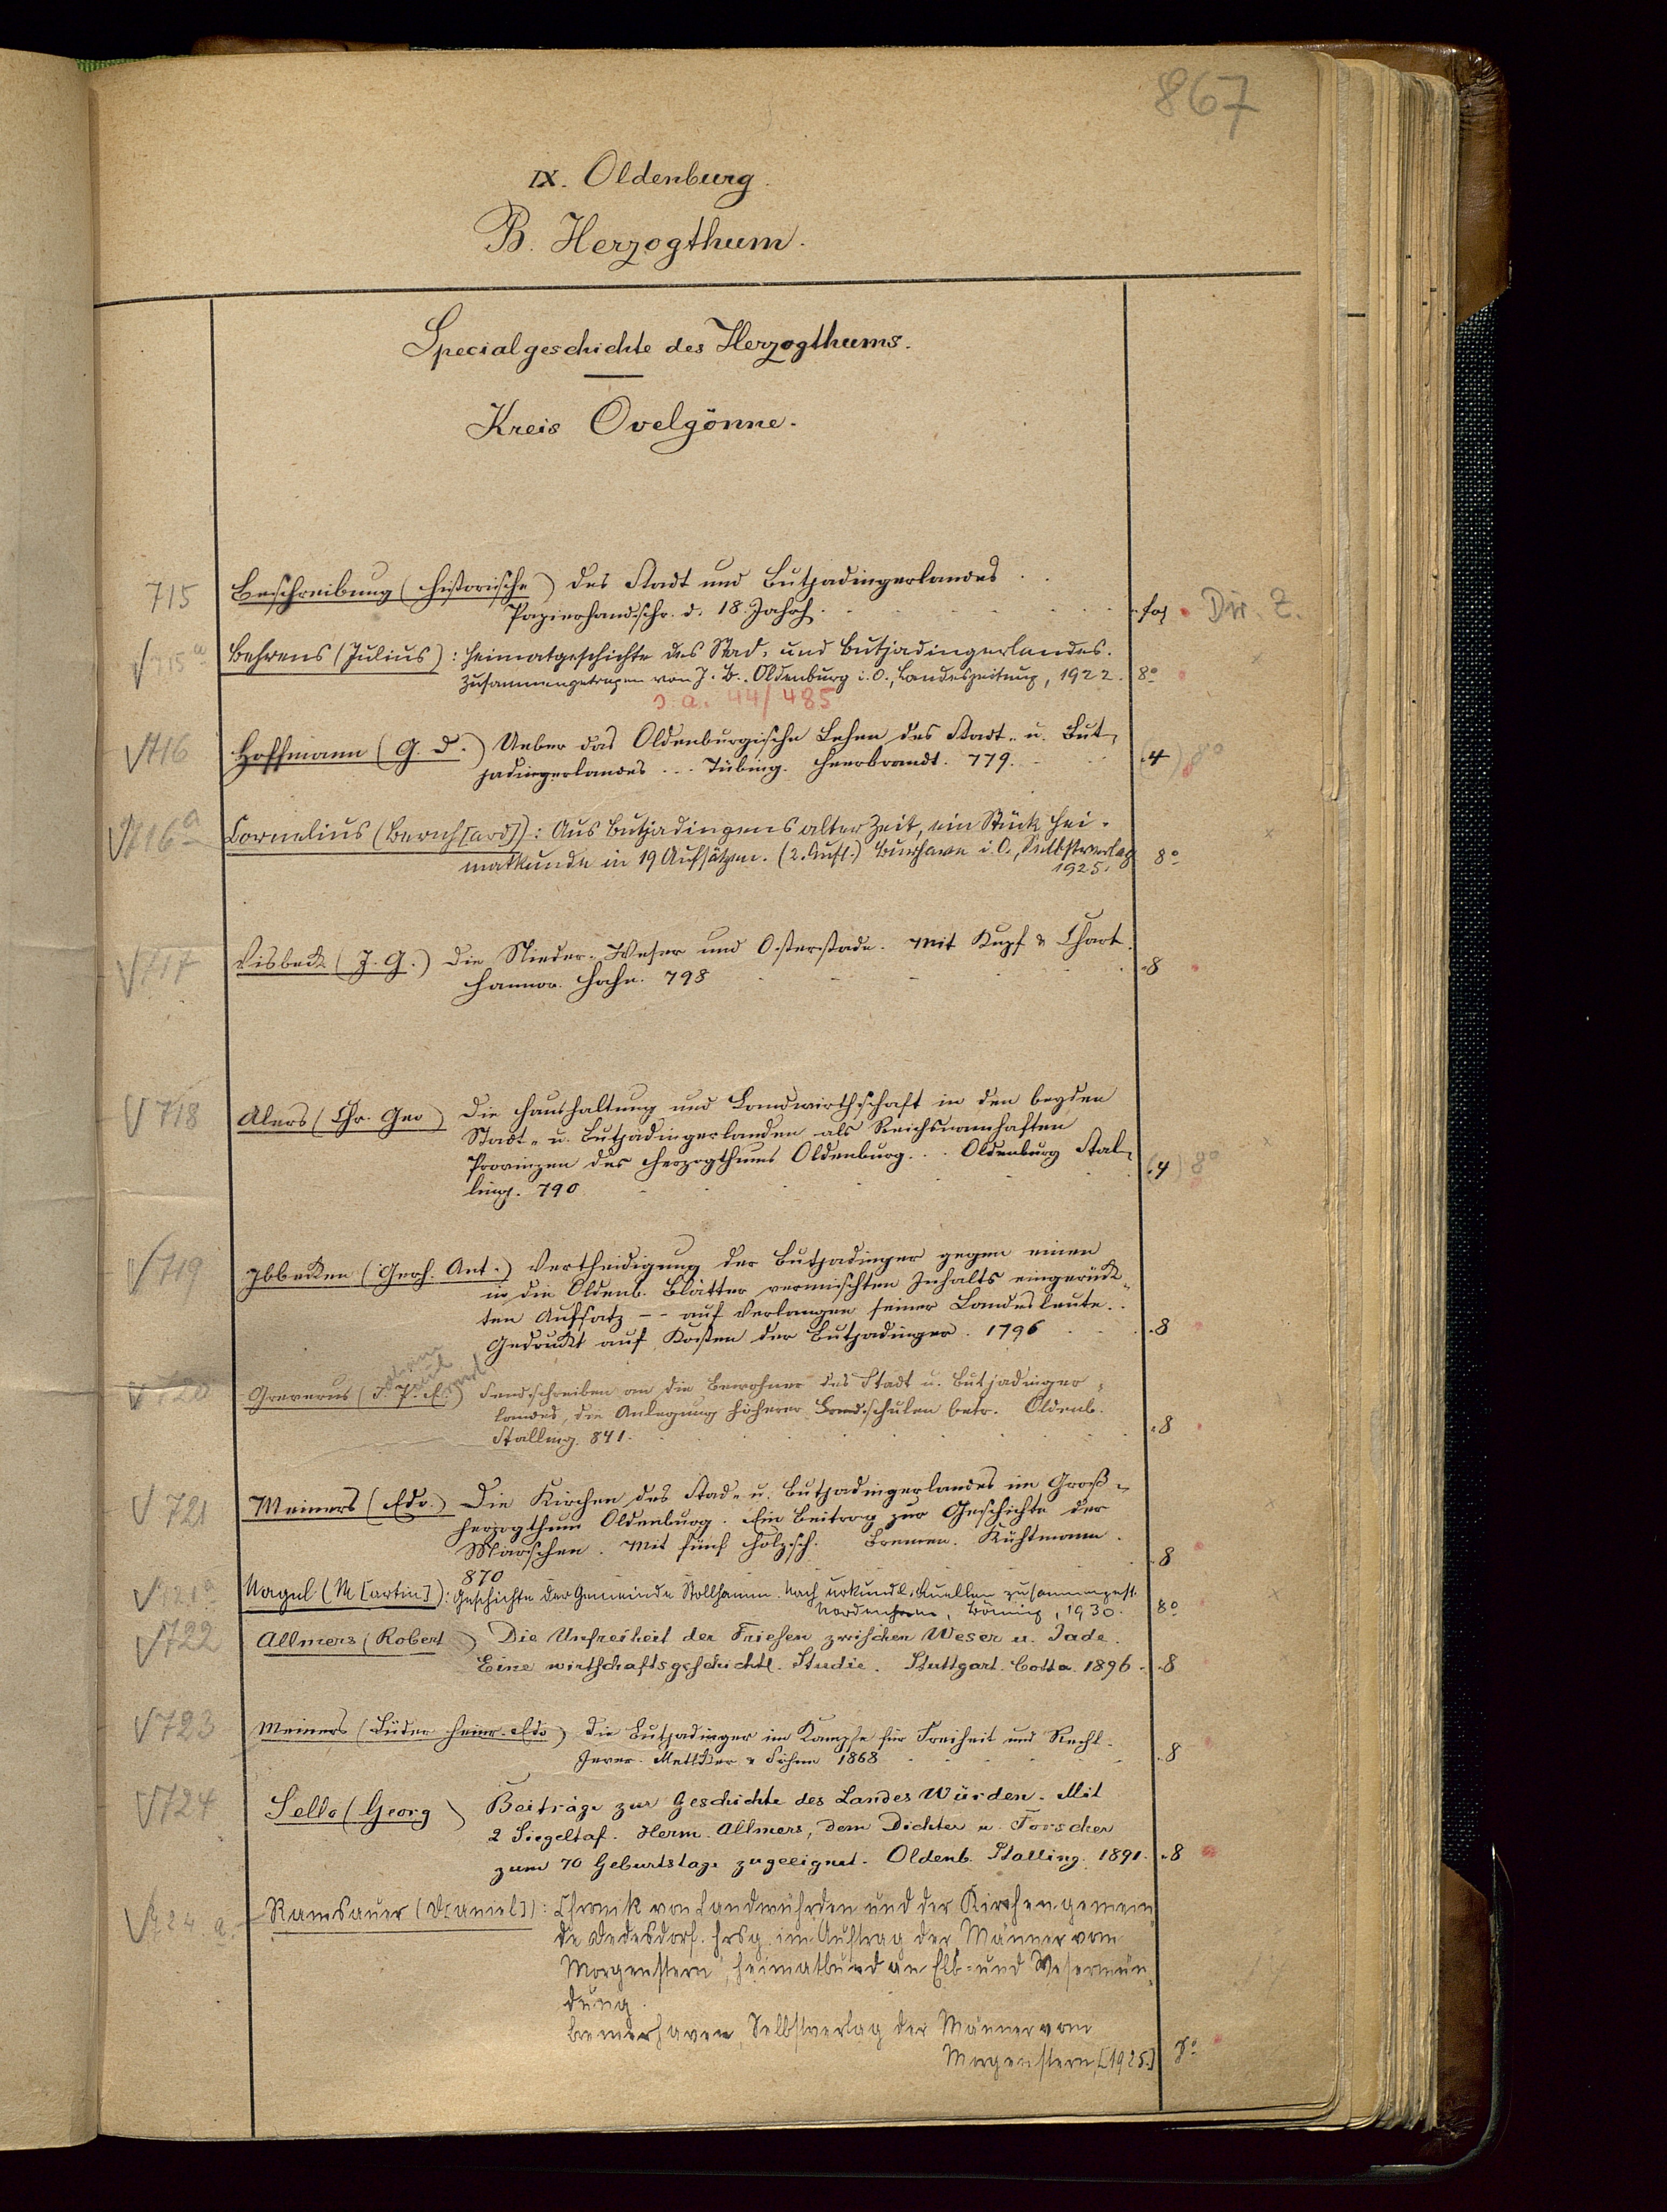 867
IX. Oldenburg.
B. Herzogthum.
Specialgeschichte des Herzogthums.
Kreis Ovelgönne.
715 Beschreibung (historische) des Stadt und Butjadingerlandes . .
Papierhandschr. d. 18. Jahrh. . fol Dir. Z.
715a Behrens (Julius): Heimatgeschichte des Stad- und Butjadingerlandes.
Zusammengetragen von J. B. Oldenburg i. O., Landeszeitung, 1922. 8°
s. a. 44/485
716 Hoffmann (G. D.) Ueber das Oldenburgische Lehen des Stadt- u. But-
jadingerlandes ... Tübing. Heerbrandt. 779. (4) 8°
716a Cornelius (Bernh[ard]): Aus Butjadingens alter Zeit, ein Stück Hei-
matkunde in 19 Aufsätzen. (2. Aufl.) Burhave i. O., Selbstverlag 8°
1925.
717 Visbeck (J. G.) Die Nieder-Weser und Osterstade. Mit Kupf & Chart.
Hannov. Hahn. 798 8
718 Alers (Chr. Geo) Die Haushaltung und Landwirthschaft in den beyden
Stadt- u. Butjadingerlanden als Reichsnamhaften
Provinzen des Herzogthums Oldenburg... Oldenburg Stal-
ling. 790 (4) 8°
719 Ibbeken (Gerh. Ant.) Vertheidigung der Butjadinger gegen einen
in die Oldenb. Blätter vermischten Inhalts eingerück-
ten Aufsatz -- auf Verlangen seiner Landesleute. .
Gedruckt auf Kosten der Butjadinger. 1796 8
720 Greverus (J. P. E.) Sendschreiben an die Bewohner des Stadt u. Butjadinger-
landes, die Anlegung höherer Landschulen betr. Oldenb.
Stalling. 841. 8
721 Meiners (Edo.) Die Kirchen des Stad- u. Butjadingerlandes im Groß-
herzogthum Oldenburg. Ein Beitrag zur Geschichte der
Marschen. Mit fünf Holzsch. Bremen. Kühtmann.
870 8
721a Nagel (M[artin]): Geschichte der Gemeinde Stollhamm. Nach urkundl. Quellen zusammengest.
Nordenham, Böning, 1930. 8°
722 Allmers (Robert) Die Unfreiheit der Friesen zwischen Weser u. Jade.
Eine wirthschaftsgeschichtl. Studie. Stuttgart. Cotta. 1896. 8
723 Meiners (Lüder Heinr. Edo) Die Butjadinger im Kampfe für Freiheit und Recht.
Jever. Mettcker & Söhne 1868 8
724 Sello (Georg) Beiträge zur Geschichte des Landes Würden. Mit
2 Siegeltaf. Herm. Allmers, dem Dichter u. Forscher
zum 70 Geburtstage zugeeignet. Oldenb. Stalling. 1891. 8
724 a. Ramsauer (D[aniel]): Chronik von Landwührden und der Kirchengemein-
de Dedesdorf. Hrsg. im Auftrag der Männer vom
Morgenstern, Heimatbund an Elb- und Wesermün-
dung.
Bremerhaven, Selbstverlag der Männer vom
Morgenstern, [1925.] 8°